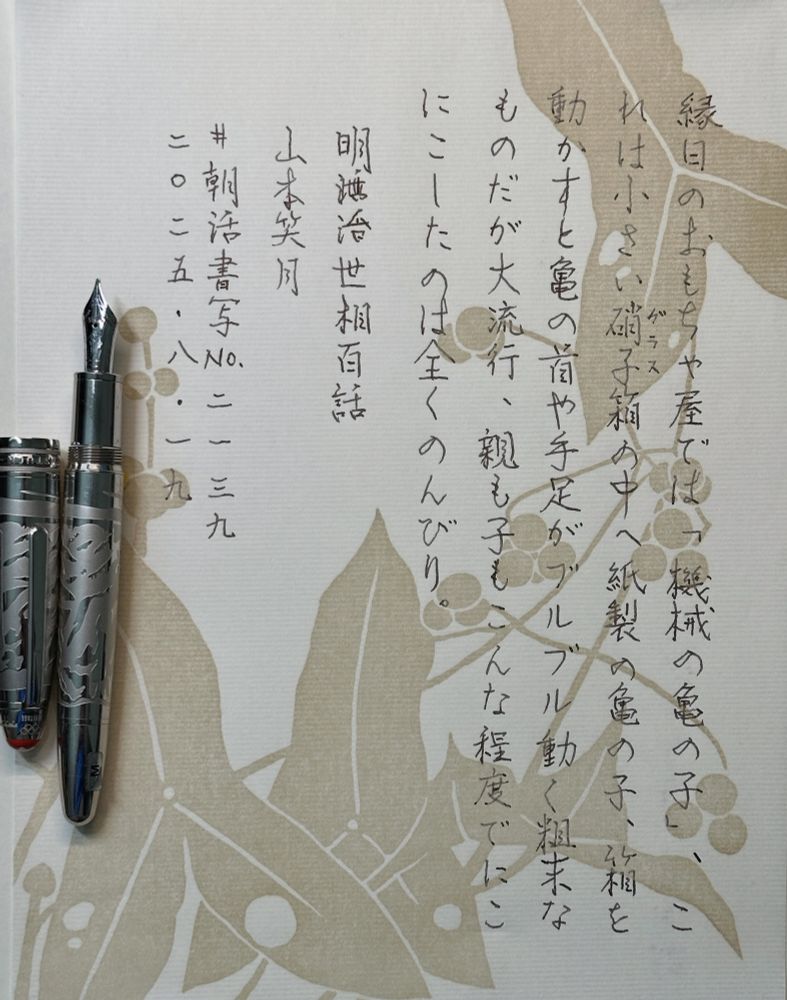 縁日のおもちゃ屋では「機械の亀の子」、こ
れは小さい硝子箱の中へ紙製の亀の子、箱を
ガラス
動かすと亀の首や手足がブルブル動く粗末な
ものだが大流行、親も子もこんな程度でにこ
にこしたのは全くのんびり。
明治世相百話
山本笑月
#朝活書写No.二一三九
二〇二五・八・一九
M